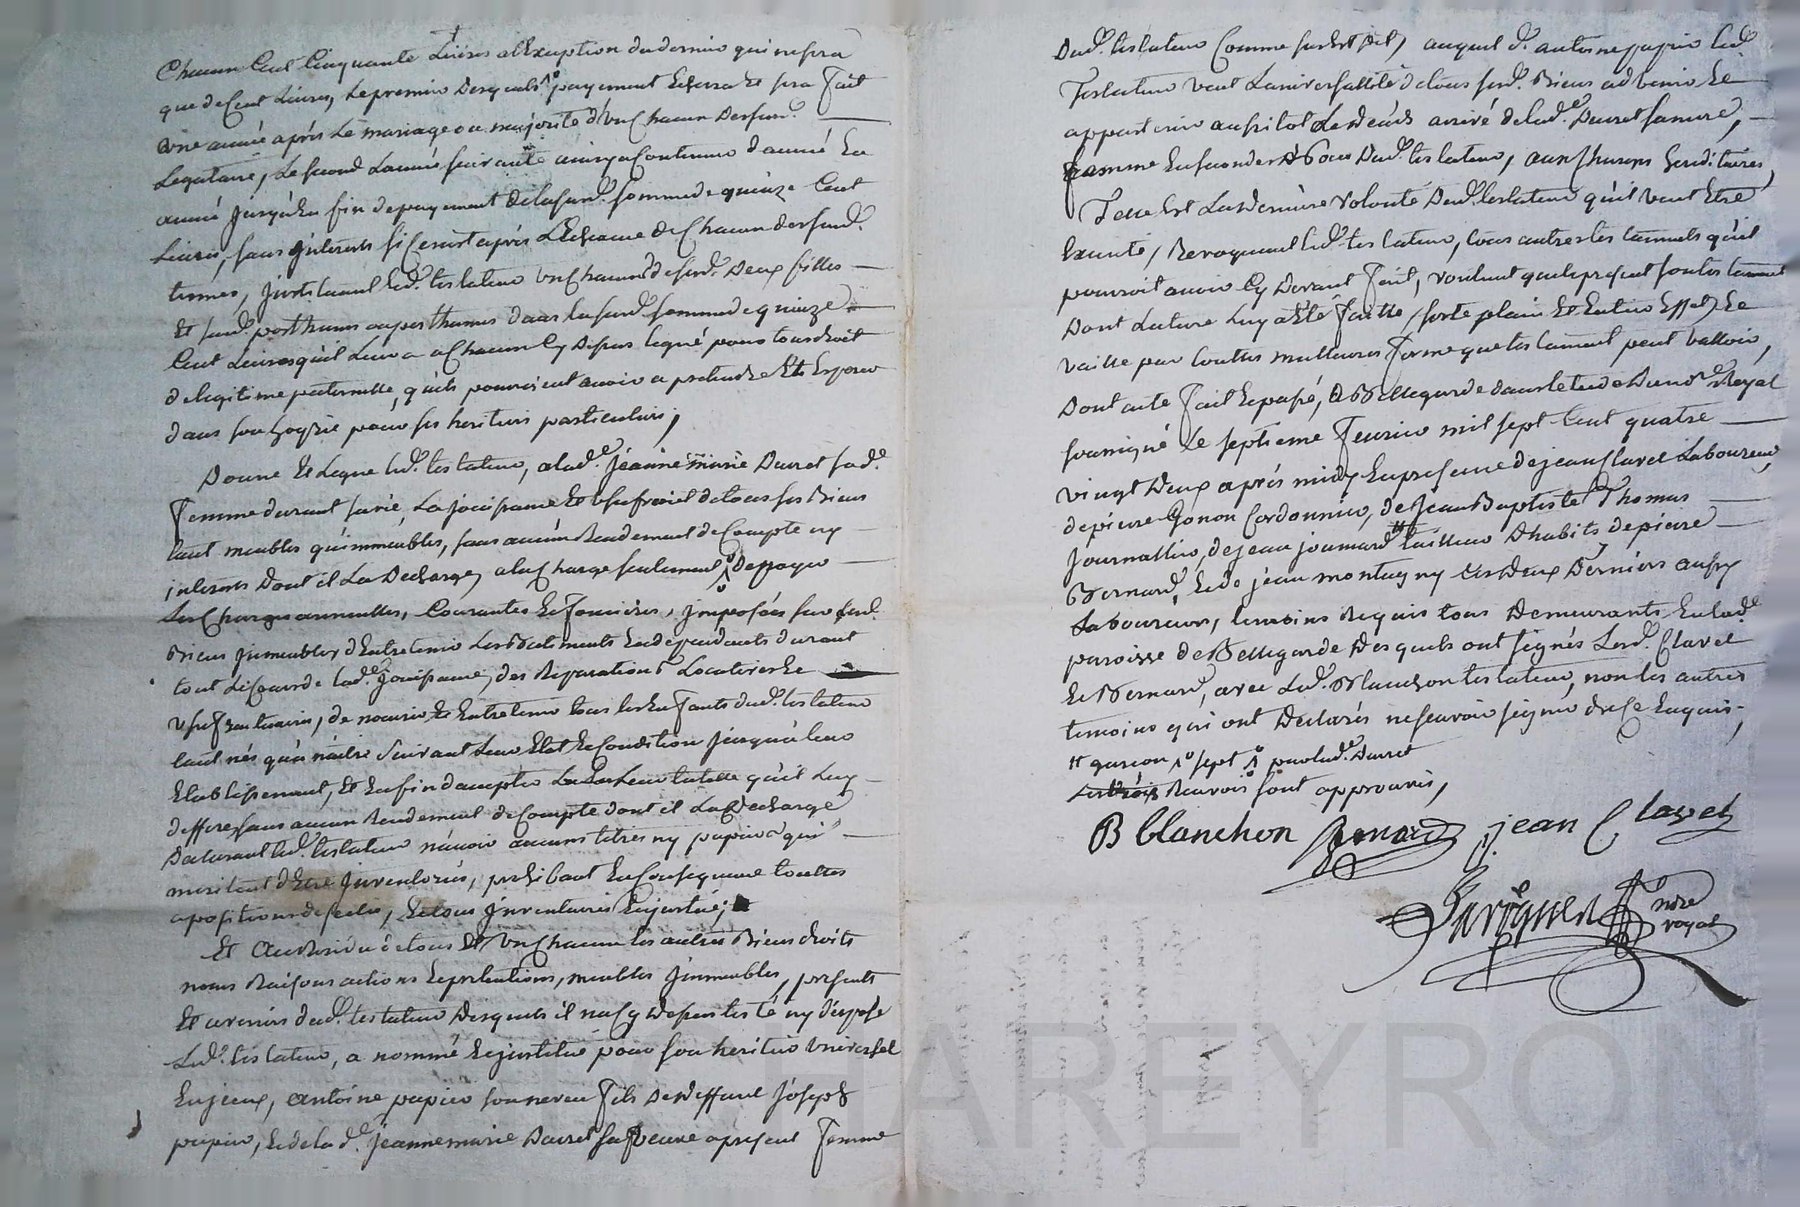 Chacun Cent Cinquante Livres a lExeption du dernier qui ne sera
que de Cent Livres, Le premier Desquels payement Se ferra Et sera fait
une année aprés Le mariage ou majorité d'Un Chacun Dessusd.
Legataire, Le second Lannée suivante ainsy a Continuer d'année En
année jusqu'a En fin de payement de la susd.e somme de quinze Cent
Livres, sans jnterests si Ce n'est aprés L'Echeance de Chacun dessusd.
termes, jnstituant Led.t testateur un Chacun de sesd. Deux filles
Et sesd. posthumes ou posthumes dans la susd.e somme de quinze
Cent Livres qu'il Leur a a Chacun Cy Depus legué pour tous droit
de legitime paternelle, qu'ils pourroient avoir a pretendre Et Esperer
dans son hoyrie pour ses heritiers particuliers,
Donne Et Legue Led.t testateur, a lad.e jeanne marie Durret sad.e
femme durant sa vie, La jouissance Et Usufruit de tous ses Biens
tant meubles qu'immeubles, sans aucun Rendement de Compte ny
jnterests Dont il La Decharge, a la Charge seulement De payer
Les Charges annuelles, Courantes Et foncieres, jmposées sur sesd.
Biens jmmeubles, d'Entretenir Les Batiments En dependants durant
tout Le Cours de lad.e jouissance, des Reparations Locatives Et
Usufructuaires, de nourrir Et Entretenir tous Les Enfants dud.t testateur
tant nés qu'a naître Suivant Leur Etat Et Condition jusqu'a leur
Etablissement, Et En fin d'accepter La tutelle qu'il Luy
deffere sans aucun Rendement de Compte dont il La Decharge
Declarant Led.t testateur n'avoir aucuns titres ny papiers qui
meritent d'Etre jnventoriés, prohibant En Consequence touttes
apositions de scellés, Et tous jnventaires En justice;
Et Au Residu de tous Et Un Chacun Les autres Biens droits
noms Raisons actions Et pretentions, meubles jmmeubles, présents
Et avenirs dud.t testateur Desquels il n'a Cy Depus testé ny disposé
Led.t testateur, a nommé Et jnstitué pour son heritier Universel
En jceux, antoine papier son neveu fils De deffunt Joseph
papier, Et de la d.e jeanne marie Durret sa veuve a present femme
Dud.t testateur Comme sus Est Dit, auquel d.t antoine papier Led.t
Testateur veut La universallité de tous sesd. Biens advenir Et
appartenir aussitot Le decés arrivé de lad.e Durret sa mere,
femme En secondes Noces Dud.t testateur, aux Charges hereditaires,
Telle Est La derniere Volonté Dud.t testateur qu'il veut Etre
Executé, Revoquant Led.t testateur, tous autres testaments qu'il
pourroit avoir Cy Devant fait, voulant que le present son testament
Dont Lecture Luy a Eté faitte, sorte plain Et Entier Effet, Et
vaille par touttes meilleures forme que testament peut Valloir,
Dont acte fait Et passé, a Bellegarde dans l'etude Du no.re Royal
soussigné Le septieme fevrier mil sept Cent quatre
vingt Deux aprés midy En presence de jean Clavel Laboureur,
de pierre Gonon Cordonnier, de Jean Baptiste Thomas
Journallier, de jean joumard tailleur D'habits, de pierre
Bernard, Et de jean montagny Ces deux Derniers aussy
Laboureurs, temoins Requis tous Demeurants En lad.e
paroisse de Bellegarde Desquels ont signés Lesd. Clavel
Et Bernard, avec Led.t Blanchon testateur, non les autres
temoins qui ont Declarés ne scavoir signer de Ce Enquis,
garcon sept par lad.e Durret
Renvois sont approuvés,
B blanchon Bernard jean Clavel
no.re royal
CHAREYRON